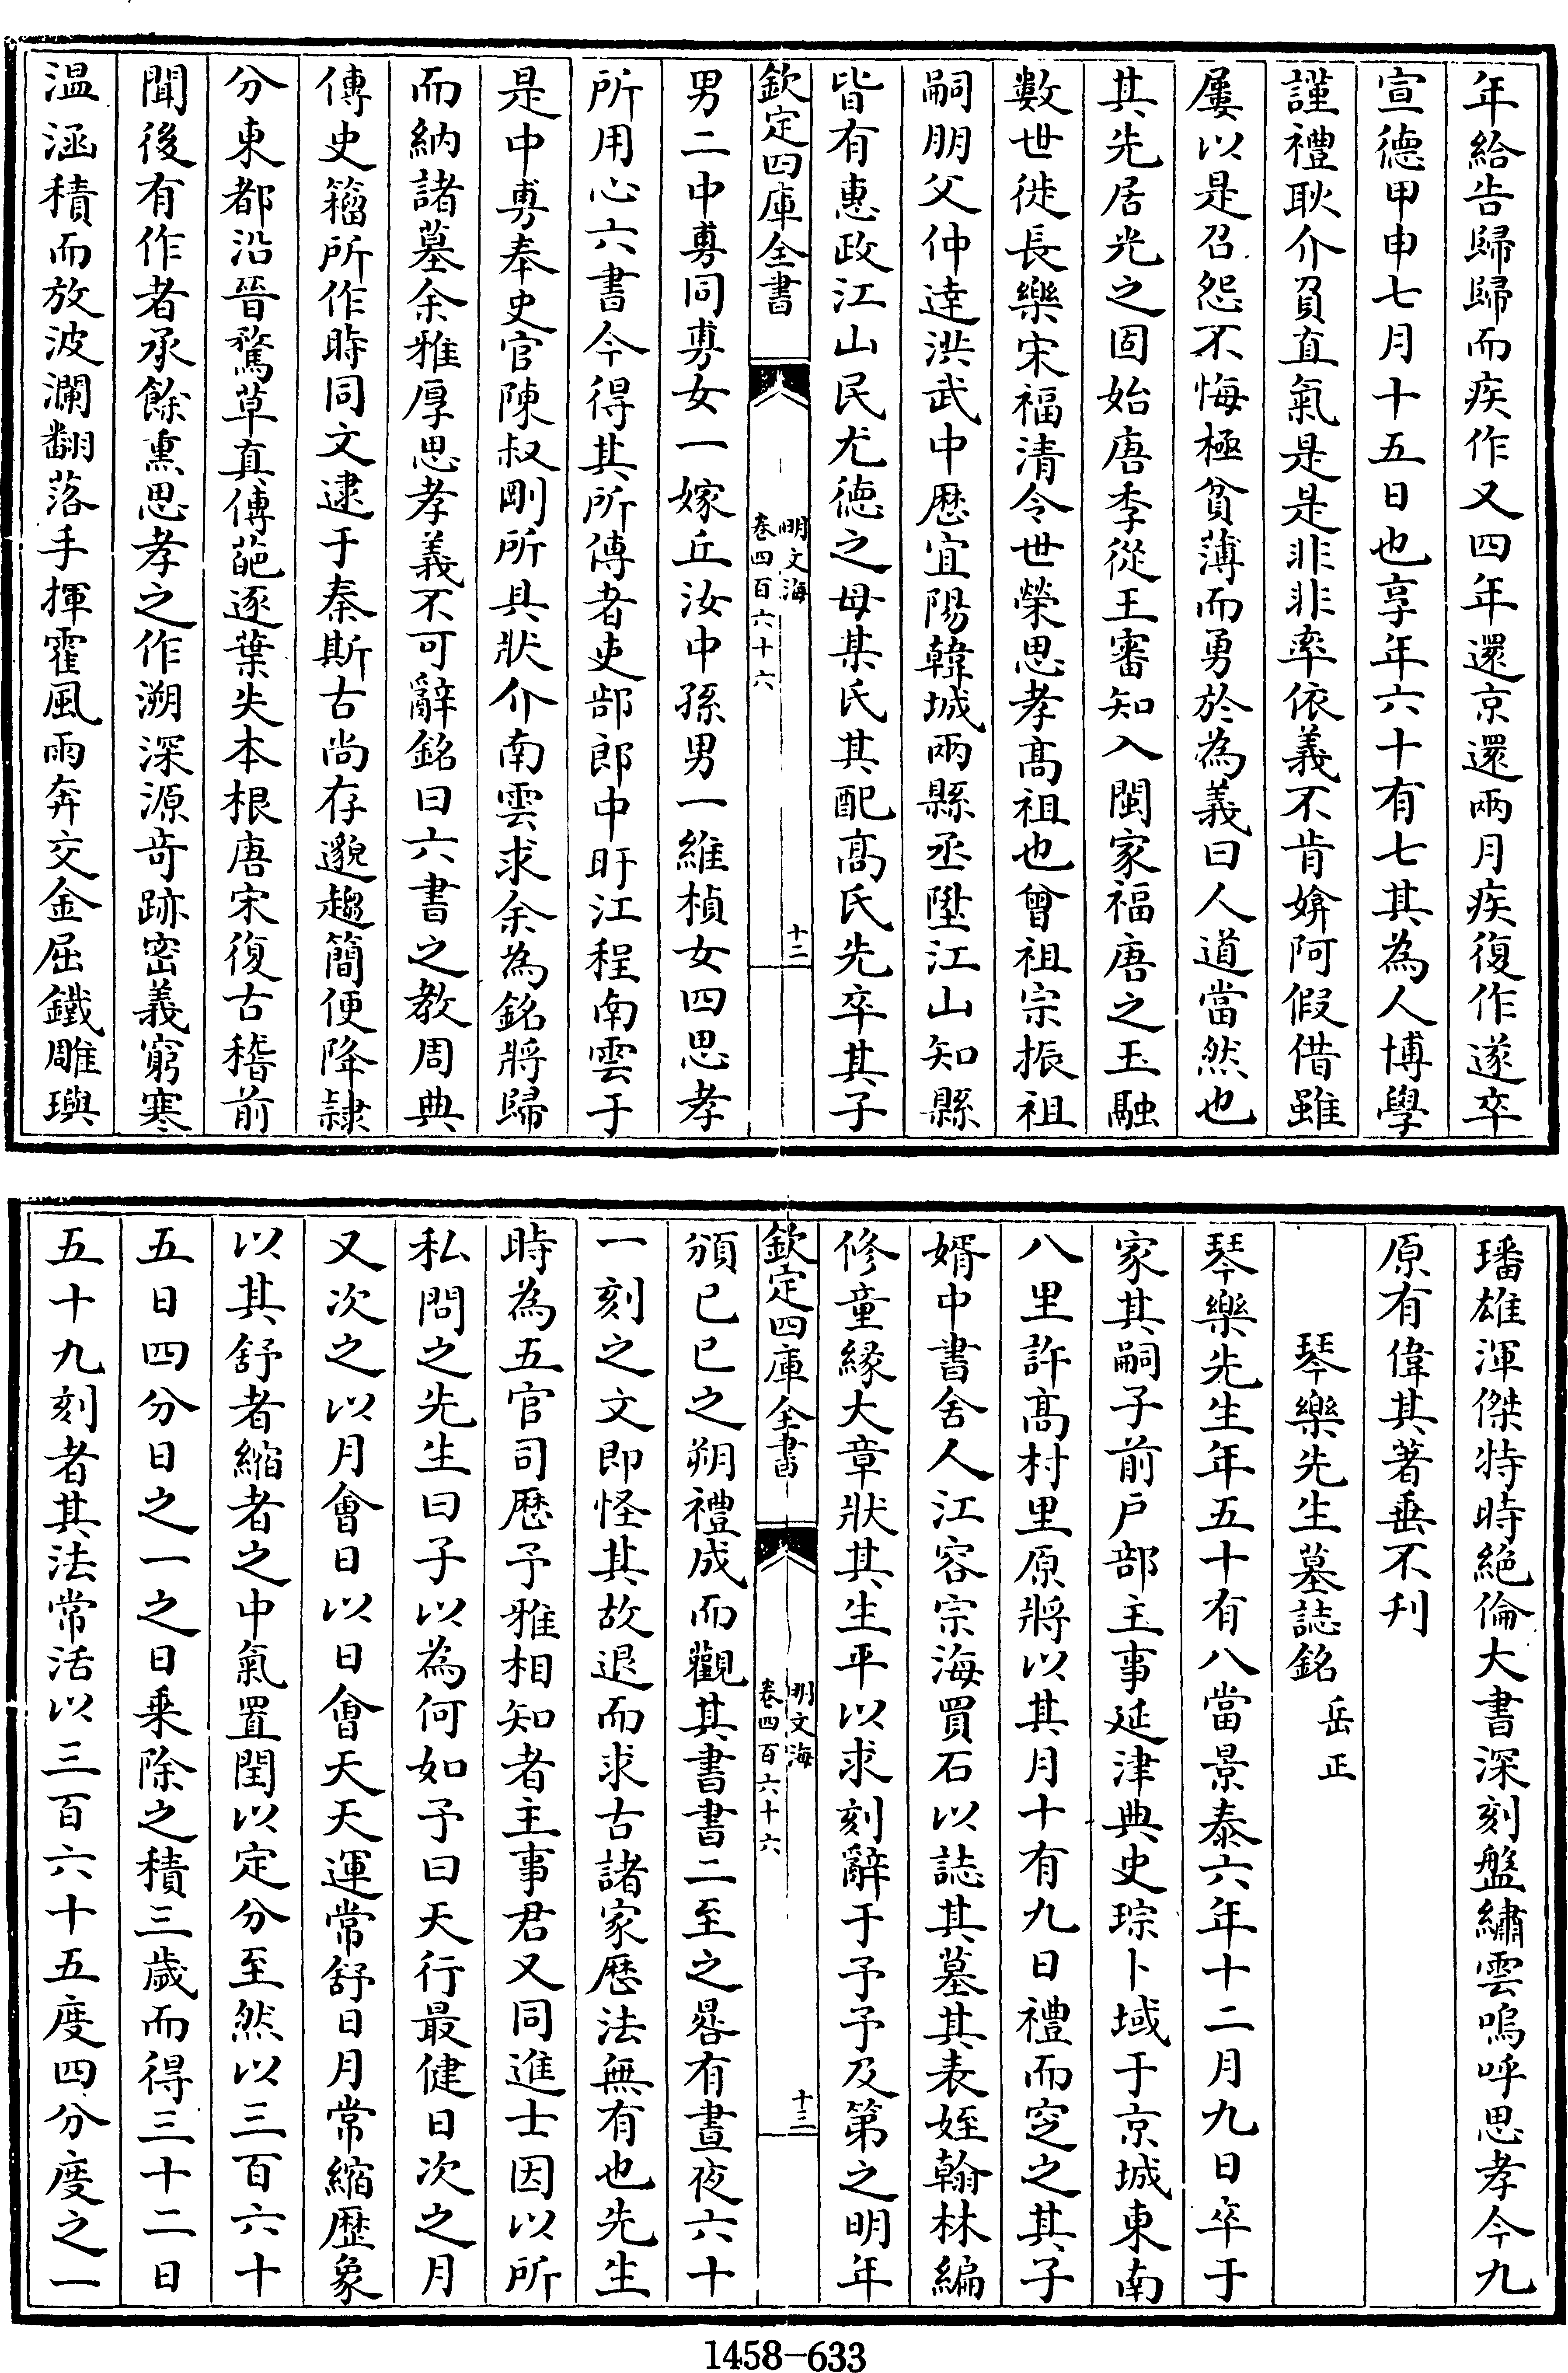 年給告歸歸而疾作又四年還京還兩月疾復作遂卒
宣德甲申七月十五日也享年六十有七其為人博學
謹禮耿介負直氣是是非非率依義不肯媕阿假借雖
屢以是召怨不悔極貧薄而勇於為義曰人道當然也
其先居光之固始唐季從王審知入閩家福唐之玉融
數世徙長樂宋福清令世榮思孝髙祖也曾祖宗振祖
嗣朋父仲逹洪武中歷宜陽韓城兩縣丞陞江山知縣
皆有惠政江山民尤德之母某氏其配髙氏先卒其子
欽定四庫全書
明文海
卷四百六十六
十二
男二中旉同旉女一嫁丘汝中孫男一維楨女四思孝
所用心六書今得其所傳者吏部郎中盱江程南雲于
是中旉奉史官陳叔剛所具狀介南雲求余為銘將歸
而納諸墓余雅厚思孝義不可辭銘曰六書之教周典
傳史籀所作時同文逮于秦斯古尚存邈趨簡便降隷
分東都沿晉騖草真傳葩逐葉失本根唐宋復古稽前
聞後有作者承餘熏思孝之作溯深源竒跡密義窮寒
温涵積而放波瀾翻落手揮霍風雨奔交金屈鐵雕璵
璠雄渾傑特時絕倫大書深刻盤繡雲嗚呼思孝今九
原有偉其著垂不刋
琴樂先生墓誌銘 岳正
琴樂先生年五十有八當景泰六年十二月九日卒于
家其嗣子前户部主事延津典史琮卜域于京城東南
八里許髙村里原將以其月十有九日禮而窆之其子
婿中書舍人江容宗海買石以誌其墓其表姪翰林編
修童緣大章狀其生平以求刻辭于予予及第之明年
欽定四庫全書
明文海
卷四百六十六
十三
頒已已之朔禮成而觀其書書二至之晷有晝夜六十
一刻之文即怪其故退而求古諸家歷法無有也先生
時為五官司歷予雅相知者主事君又同進士因以所
私問之先生曰子以為何如予曰天行最健日次之月
又次之以月會日以日會天天運常舒日月常縮歷象
以其舒者縮者之中氣置閏以定分至然以三百六十
五日四分日之一之日乗除之積三歲而得三十二日
五十九刻者其法常活以三百六十五度四分度之一
1458-633